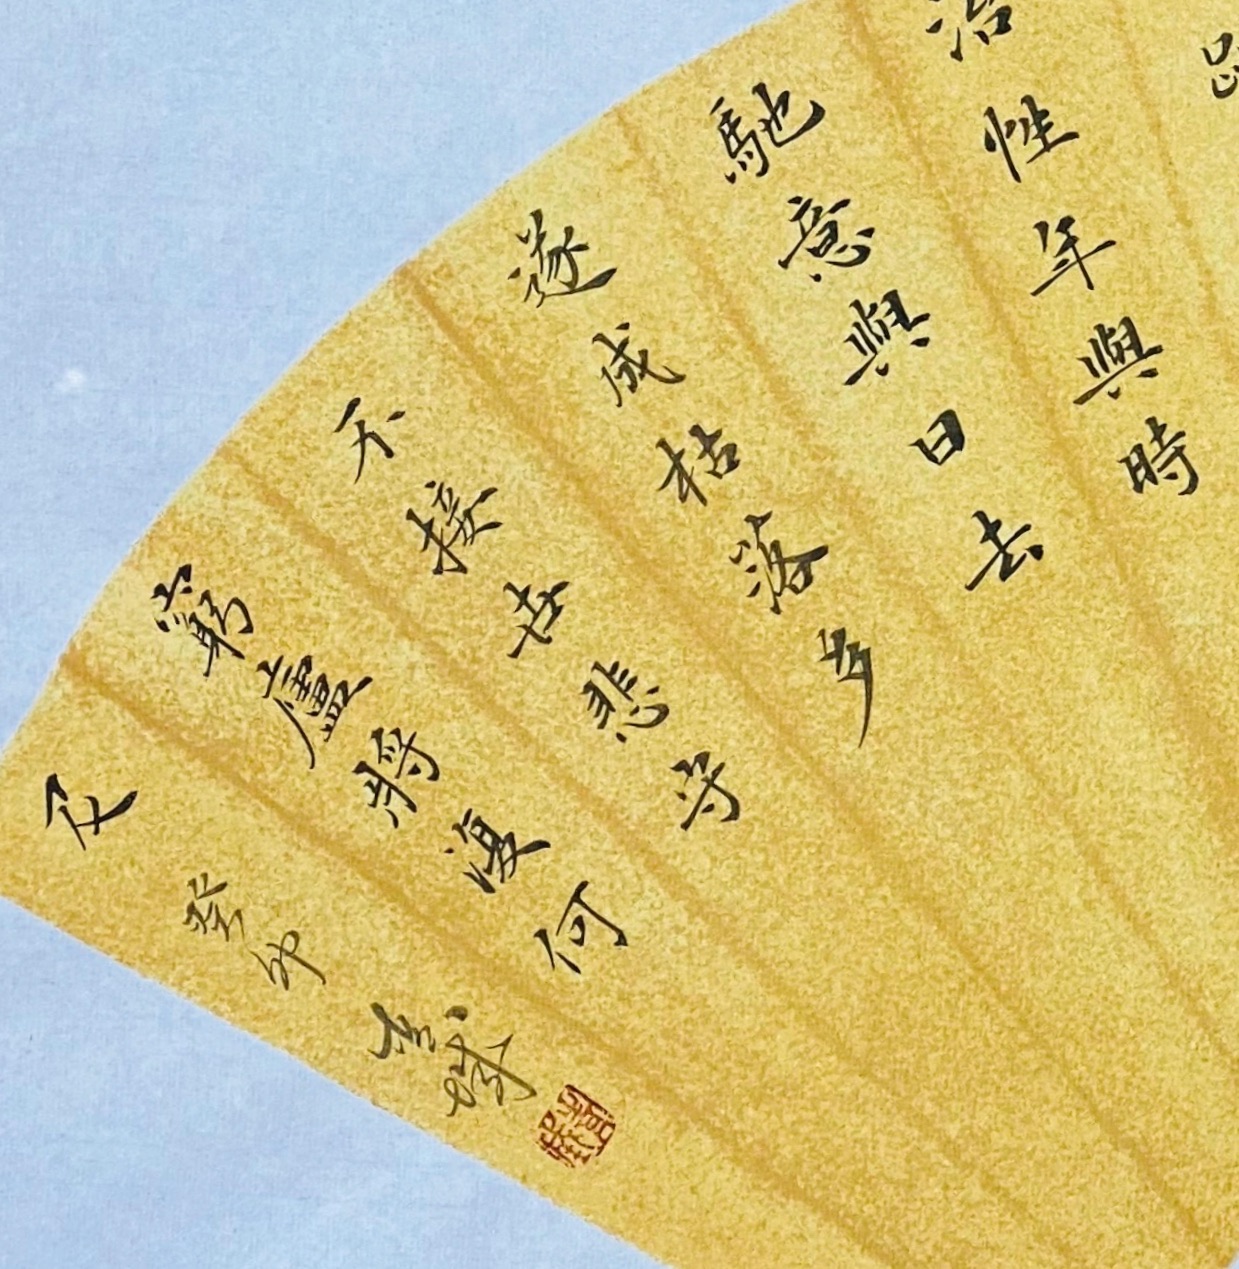 治性年與時
馳意與日去
遂成枯落多
不接世悲守
窮廬將復何
及 癸卯